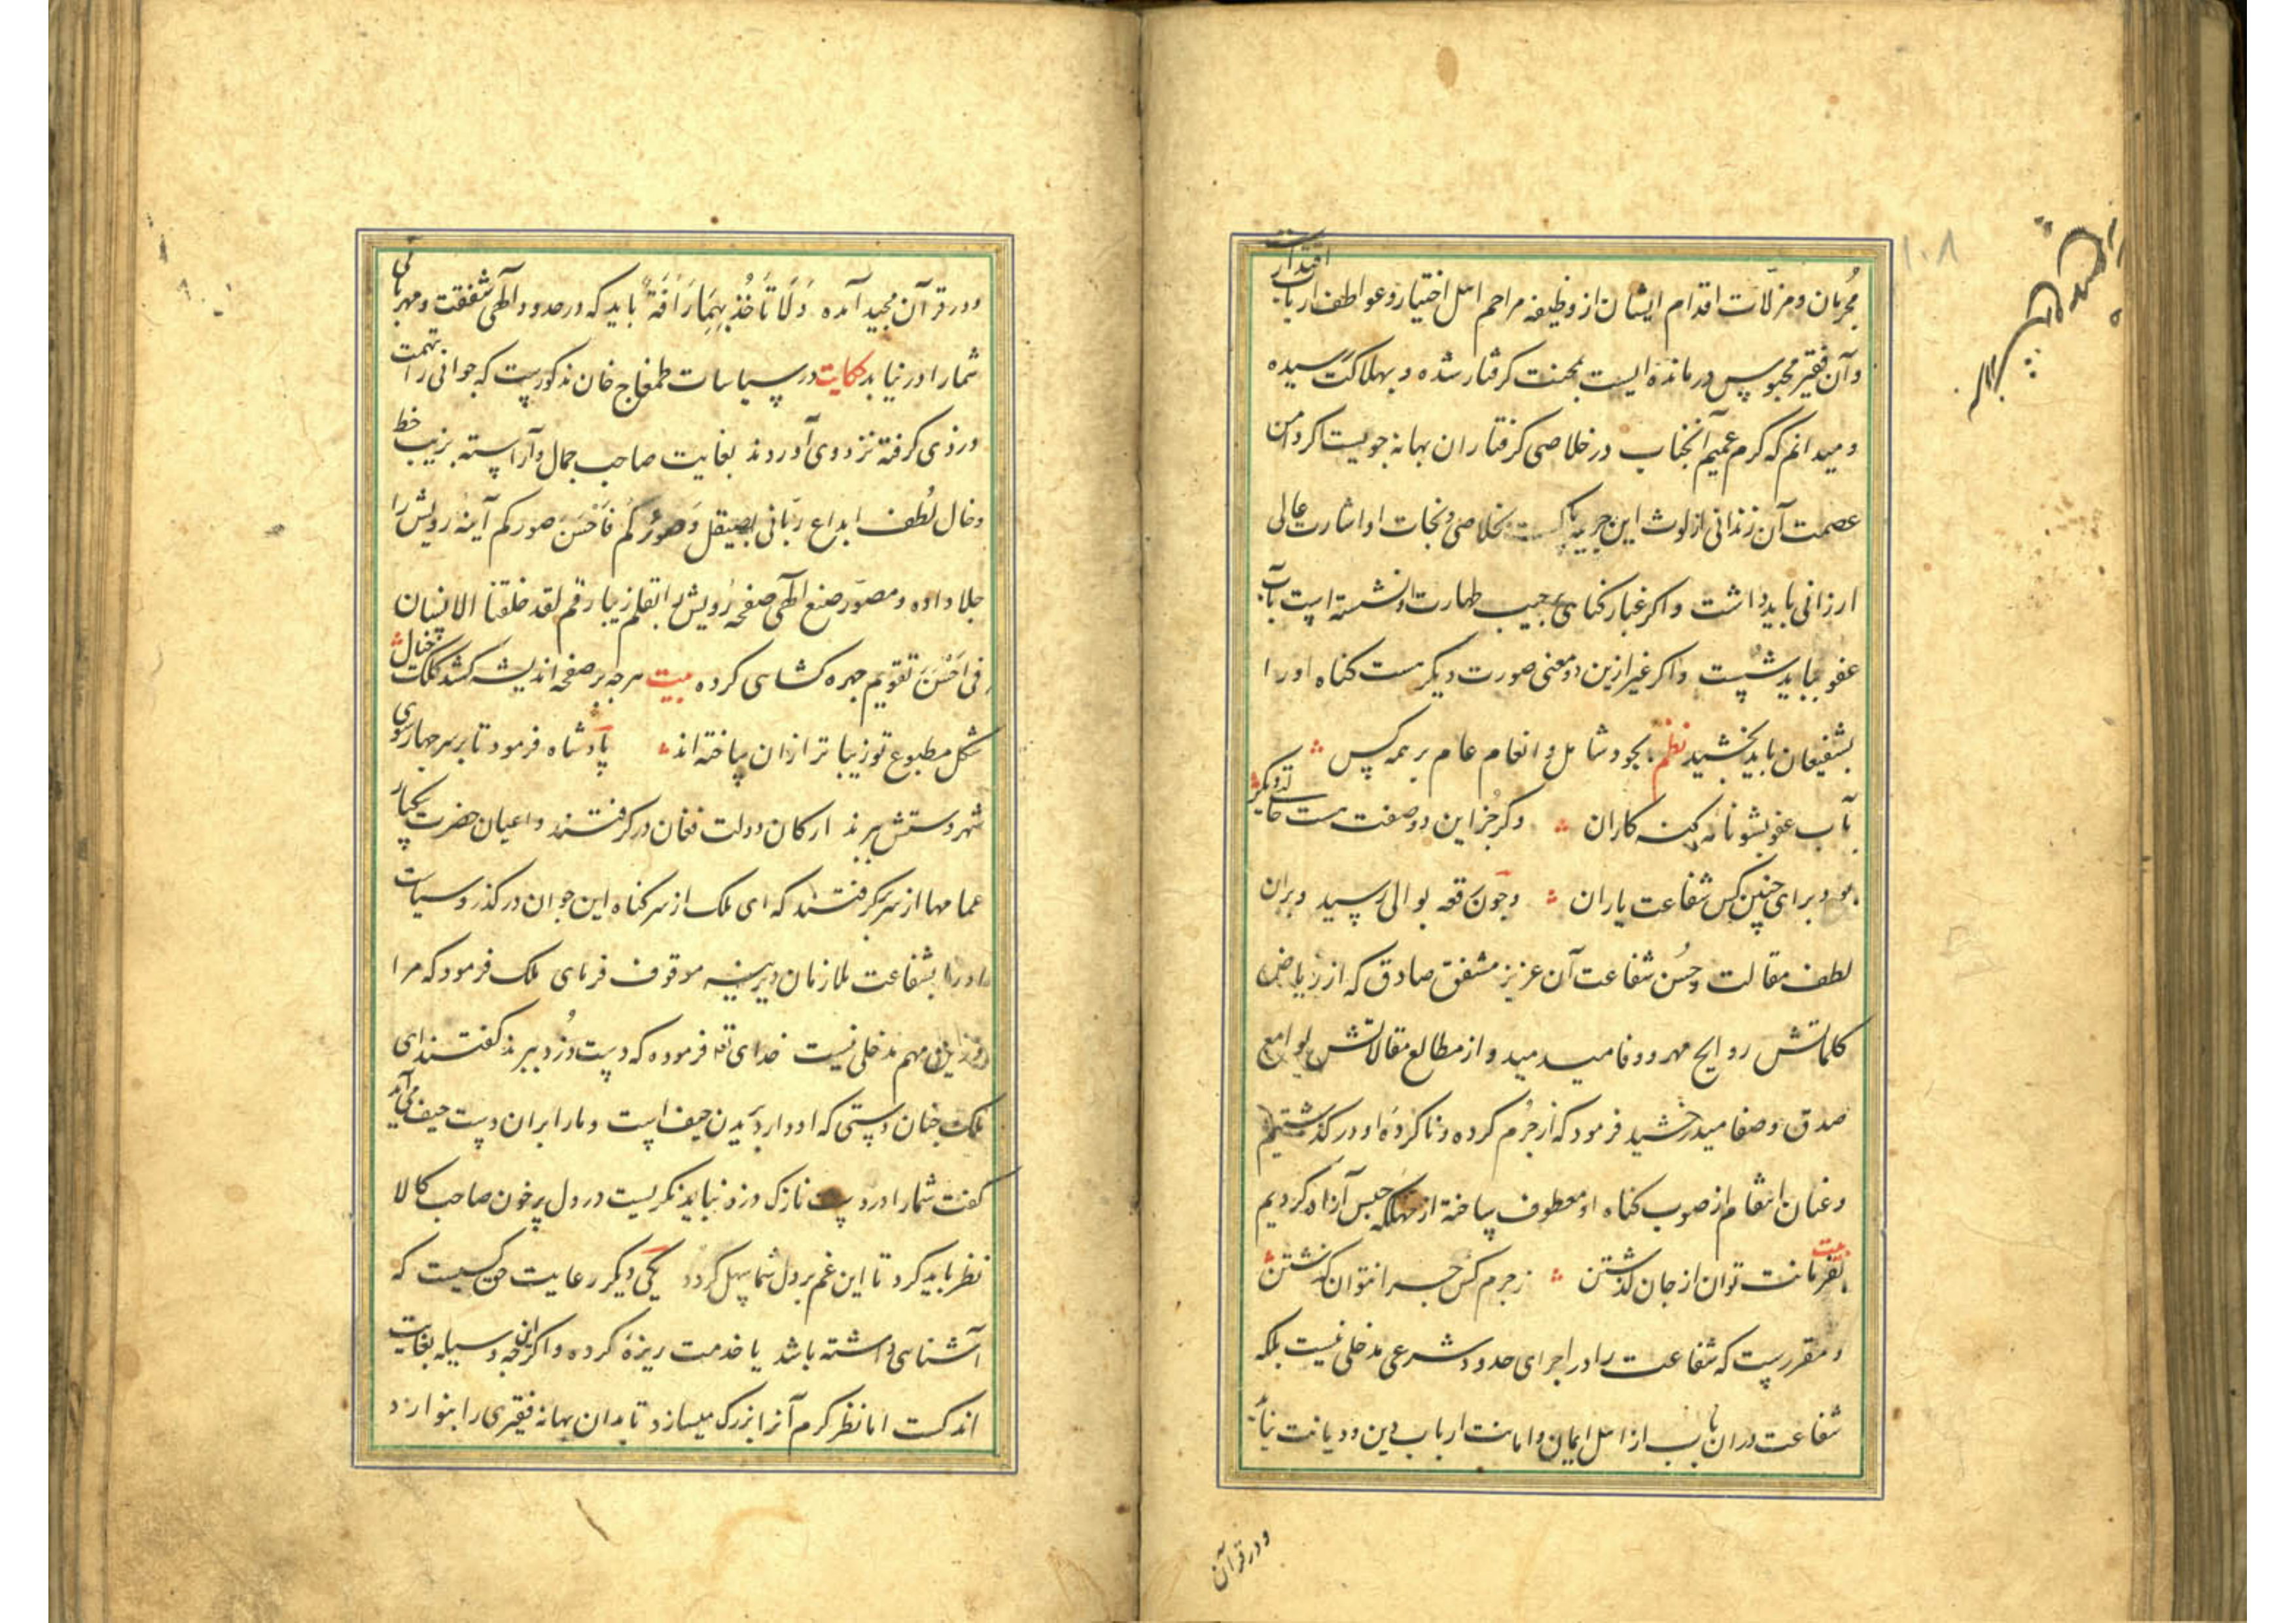 مجرمان ومزلّات اقدام ایشان از وظیفه مراحم اهل اختیار وعواطف ارباب اقتدار است
وآن فقیر محبوس درمانده ایست بمحنت گرفتار شده و بهلاکت رسیده
ومیدانم که کرم عمیم آنجناب در خلاصی گرفتاران بهانه جویست اگر دامن
عصمت آن زندانی از لوث این جریمه پاکست بخلاصی ونجات او اشارت عالی
ارزانی باید داشت واکر غبار کناهی بر جیب طهارت او نشسته است بآب
عفو بباید شست واکر غیر ازین دو معنی صورت دیکر هست کناه او را
بشفیعان باید بخشید نظم بجود شامل و انعام عام بر همه کس
بآب عفو بشو نامه کنه کاران وکر جز این دو صفت هست حالتی دیکر
بود برای چنین کس شفاعت یاران وچون رقعه بوالی رسید وبران
لطف مقالت وحُسن شفاعت آن عزیز مشفق صادق که از ریاض
کلماتش روایح مهر ووفا میدمید و از مطالع مقالاتش لوامع
صدق وصفا میدرخشید فرمود که از جُرم کرده وناکردهٔ او درکذشتیم
وعنان انتقام از صوب کناه او معطوف ساخته از مهلکه حبس آزاد کردیم
بیت بفرمانت توان از جان کذشتن ز جرم کس چرا نتوان کذشتن
ومقررست که شفاعت را در اجرای حدود شرعی مدخلی نیست بلکه
شفاعت دران باب از اهل ایمان وامانت ارباب دین ودیانت نیاید
ودر قرآن
۱۰۸
ودر قرآن مجید آمده وَلَا تَأخُذ بِهِمَا رَاْفَةٌ باید که در حدود الهی شفقت ومهربانی
شما را درنیابد حکایت در سیاسات طمغاج خان مذکورست که جوانی را بتهمت
دزدی کرفته نزد وی آوردند بغایت صاحب جمال وآراسته بزیب خط
وخال لُطف ابداع ربّانی بصیقل وَصوّرکُم فَاَحْسَنَ صورکم آینه رویش را
جلا داده ومصوّر صنع الهی صفحه رویش را بقلم زیبا رقم لقد خلقنا الانسان
فی اَحْسَن تقویم چهره کشایی کرده بیت هرچه بر صفحه اندیشه کشد کلک خیال
شکل مطبوع تو زیباتر ازان ساخته اند پادشاه فرمود تا بر سر چهارسوی
شهر دستش ببرند ارکان دولت فغان درکرفتند واعیان حضرت بیکبار
عمامها از سر برکرفتند که ای ملک از سر کناه این جوان درکذر وسیاست
او را بشفاعت ملازمان دیرینه موقوف فرمای ملک فرمود که مرا
درین مهم مدخلی نیست خدای تعه فرموده که دست دُزد ببرند کفتند ای
ملک چنان دستی که او دارد بریدن حیف است ومارا بران دست حیف می آید
کفت شما را در دست نازک دزد نباید نکریست در دل پر خون صاحب کالا
نظر باید کرد تا این غم بر دل شما سهل کردد یکی دیکر رعایت حق کسیست که
آشنایی داشته باشد یا خدمت ریزهٔ کرده واکرچه این وسیله بغایت
اندکست اما نظر کرم آنرا بزرک میسازد تا بدان بهانه فقیری را بنوازد